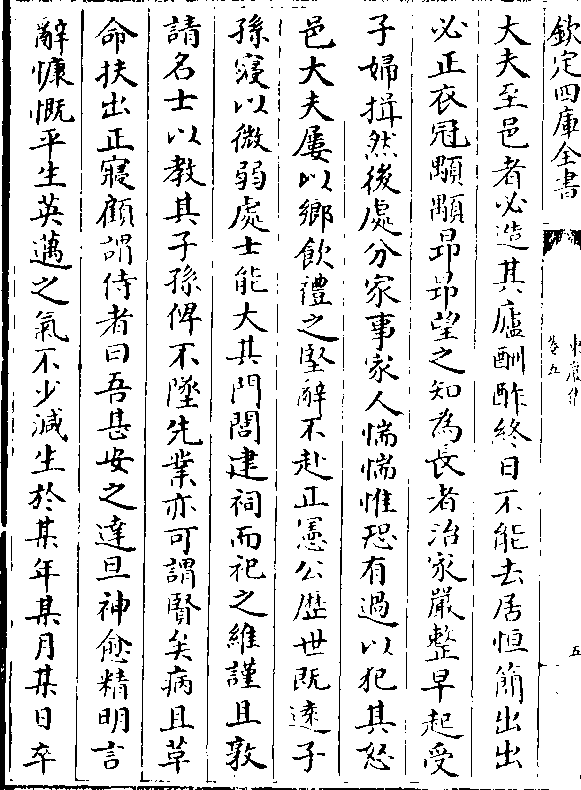 欽定四庫全書
卷五
五
大夫至邑者必造其廬酬酢終日不能去居恒簡出出
必正衣冠顒顒昂昂望之知為長者治家嚴整早起受
子婦揖然後處分家事家人惴惴惟恐有過以犯其怒
邑大夫屢以鄉飲禮之堅辭不赴正憲公歴世既逺子
孫寖以微弱處士能大其門閭建祠而祀之維謹且敦
請名士以教其子孫俾不墜先業亦可謂賢矣病且草
命扶出正寢顧謂侍者曰吾甚安之達旦神愈精明言
辭慷慨平生英邁之氣不少減生於某年某月某日卒